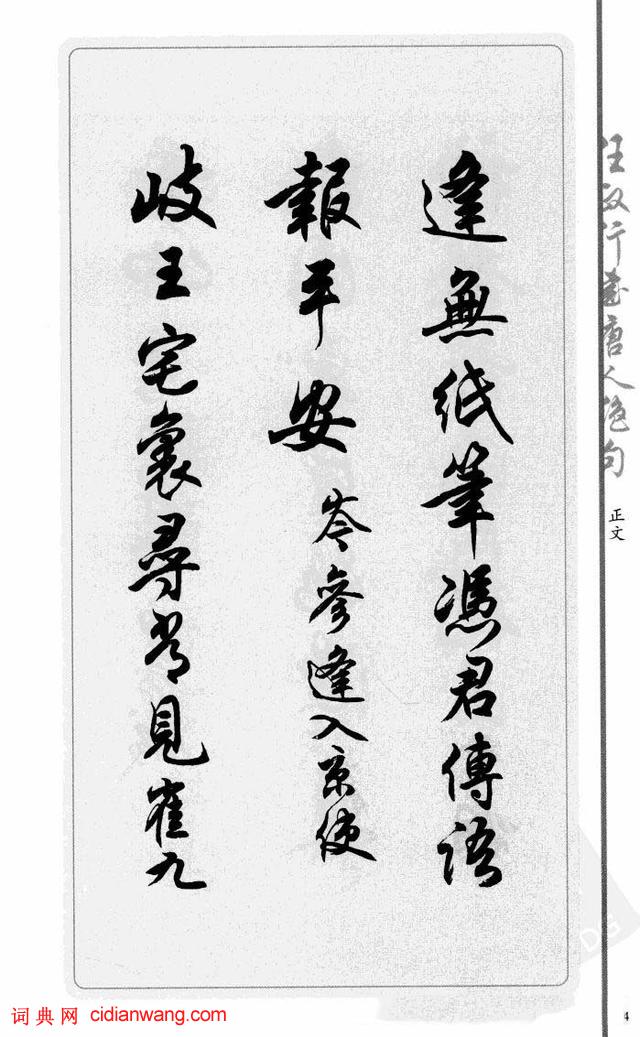 逢無紙筆憑君傳語
報平安 岑參逢入京使
岐王宅裏尋常見崔九
任政行書唐人絕句
正文
4
词典网 cidianwang.com
DG